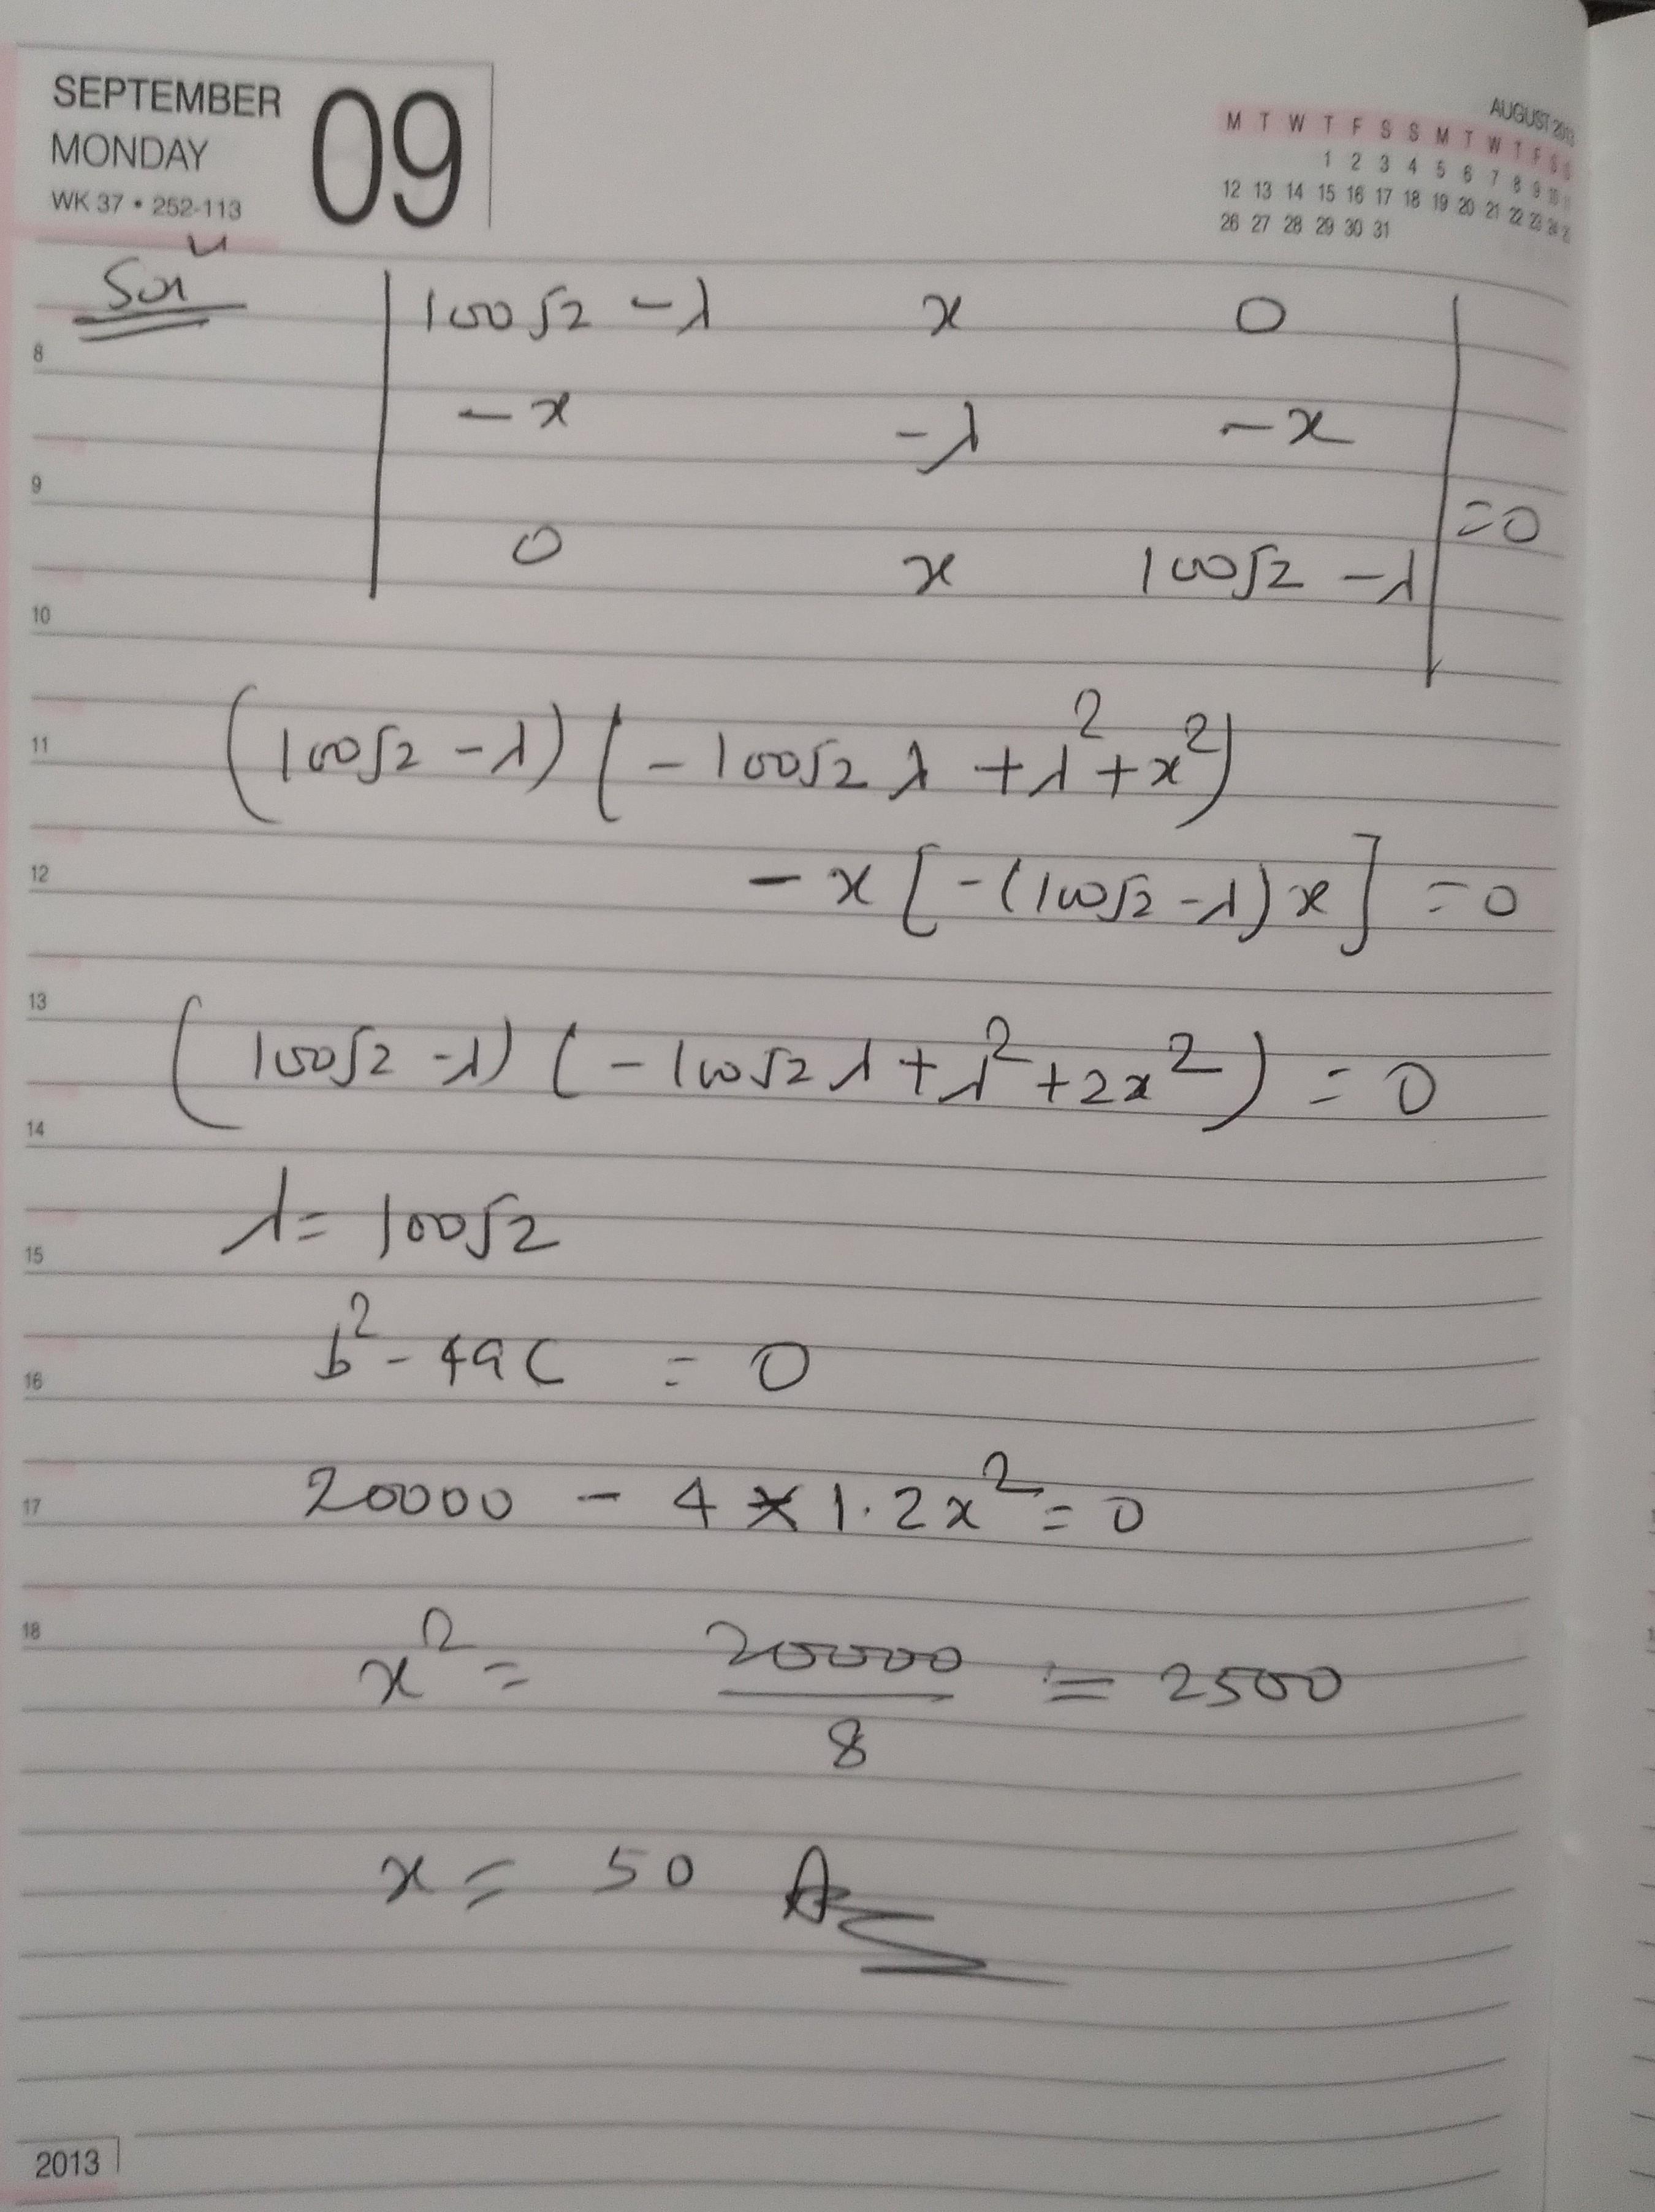 SEPTEMBER
MONDAY
WK 37 • 252-113
09
AUGUST 2013
M T W T F S S M T W T F S S
1 2 3 4 5 6 7 8 9 10 11
12 13 14 15 16 17 18 19 20 21 22 23 24 25
26 27 28 29 30 31
Solⁿ
| 100√2 - λ x 0 |
8
| -x -λ -x |
9
| 0 x 100√2 - λ | = 0
10
11 (100√2 - λ) (-100√2 λ + λ² + x²)
12 - x [-(100√2 - λ) x] = 0
13
(100√2 - λ) (-100√2 λ + λ² + 2x²) = 0
14
λ = 100√2
15
b² - 4ac = 0
16
17 20000 - 4 × 1·2x² = 0
18
x² = 20000/8 = 2500
x = 50 A
2013